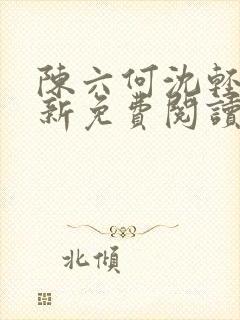 陳六何沈輕
新免費閱讀
北傾